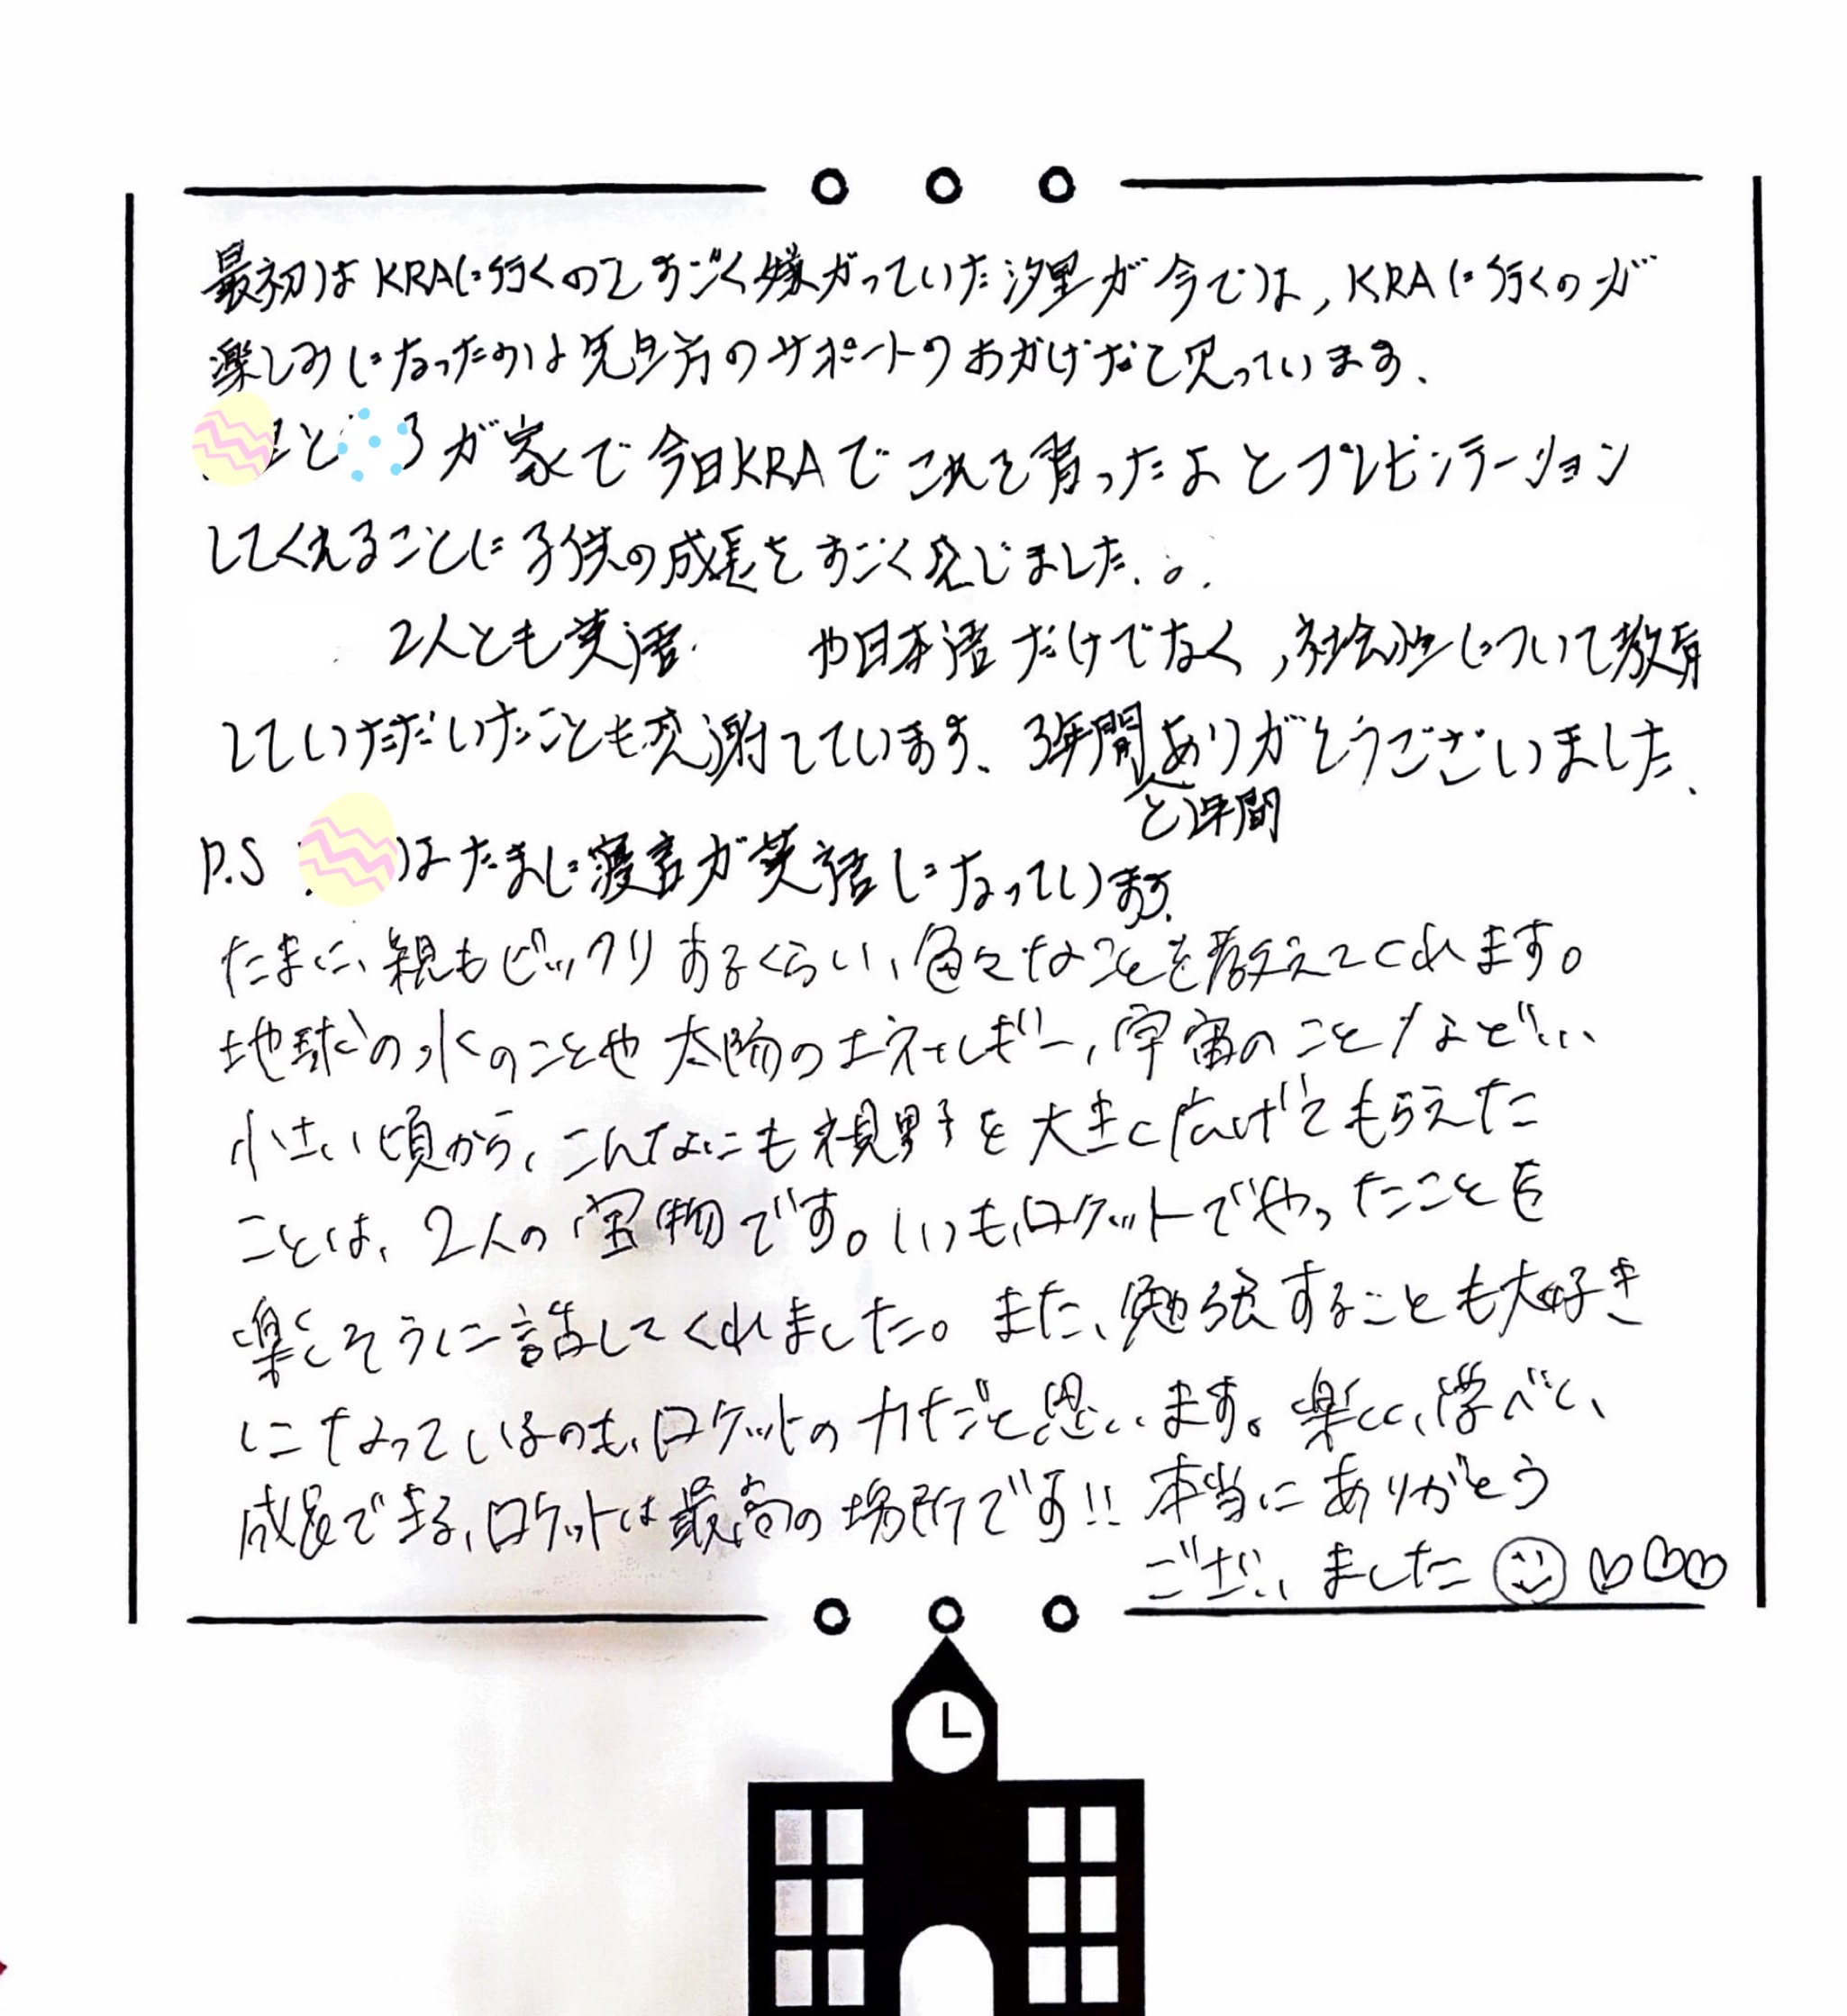 最初はKRAに行くのをすごく嫌がっていた汐里が今では,KRAに行くのが
楽しみになったのは先生方のサポートのおかげだと思っています、
と が家で今日KRAでこれを習ったよとプレゼンテーション
してくれることに子供の成長をすごく感じました。
2人とも英語 や日本語だけでなく,社会性について教育
していただいたことも感謝しています、3年間ありがとうございました、
と2年間
P.S はたまに寝言が英語になっています。
たまに、親もビックリするくらい、色々なことを教えてくれます。
地球の水のことや太陽のエネルギー、宇宙のことなど…
小さい頃から、こんなにも視野を大きく広げてもらえた
ことは、2人の宝物です。いつも、ロケットでやったことを
楽しそうに話してくれました。また、勉強することも大好き
になっているのも、ロケットの力だと思います。楽しく、学べて、
成長できる、ロケットは最高の場所です!! 本当にありがとう
ございました